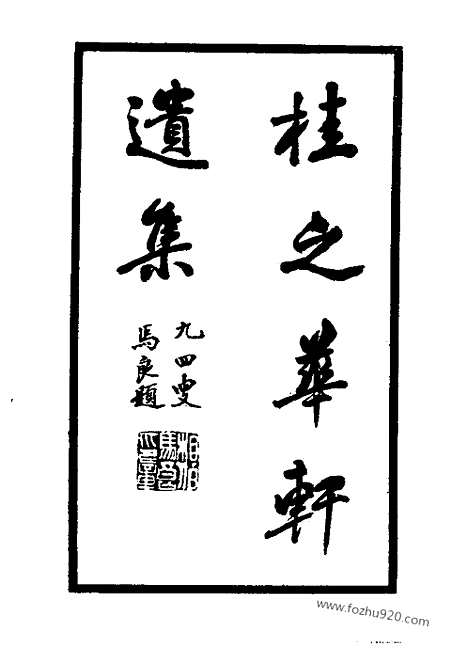 桂之華軒
遺集
九四叟
馬良題
www.fozhu920.com